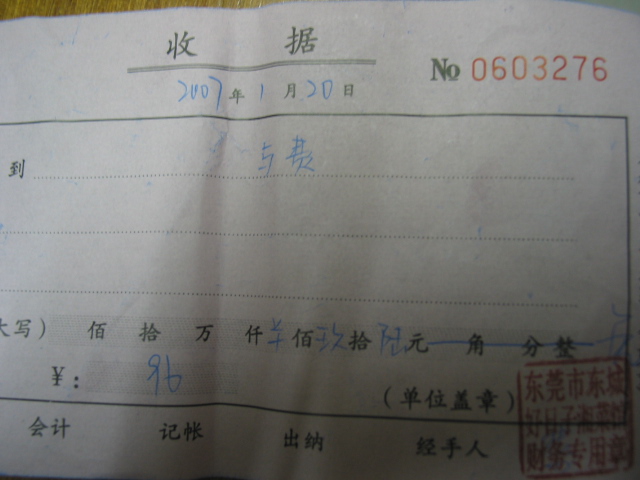 收 据
№ 0603276
2007 年 1 月 20 日
到
费
大写) 佰 拾 万 仟 佰 玖 拾 陆 元 角 分 整
¥: 96
(单位盖章)
东莞市东城
财务专用章
会计 记帐 出纳 经手人